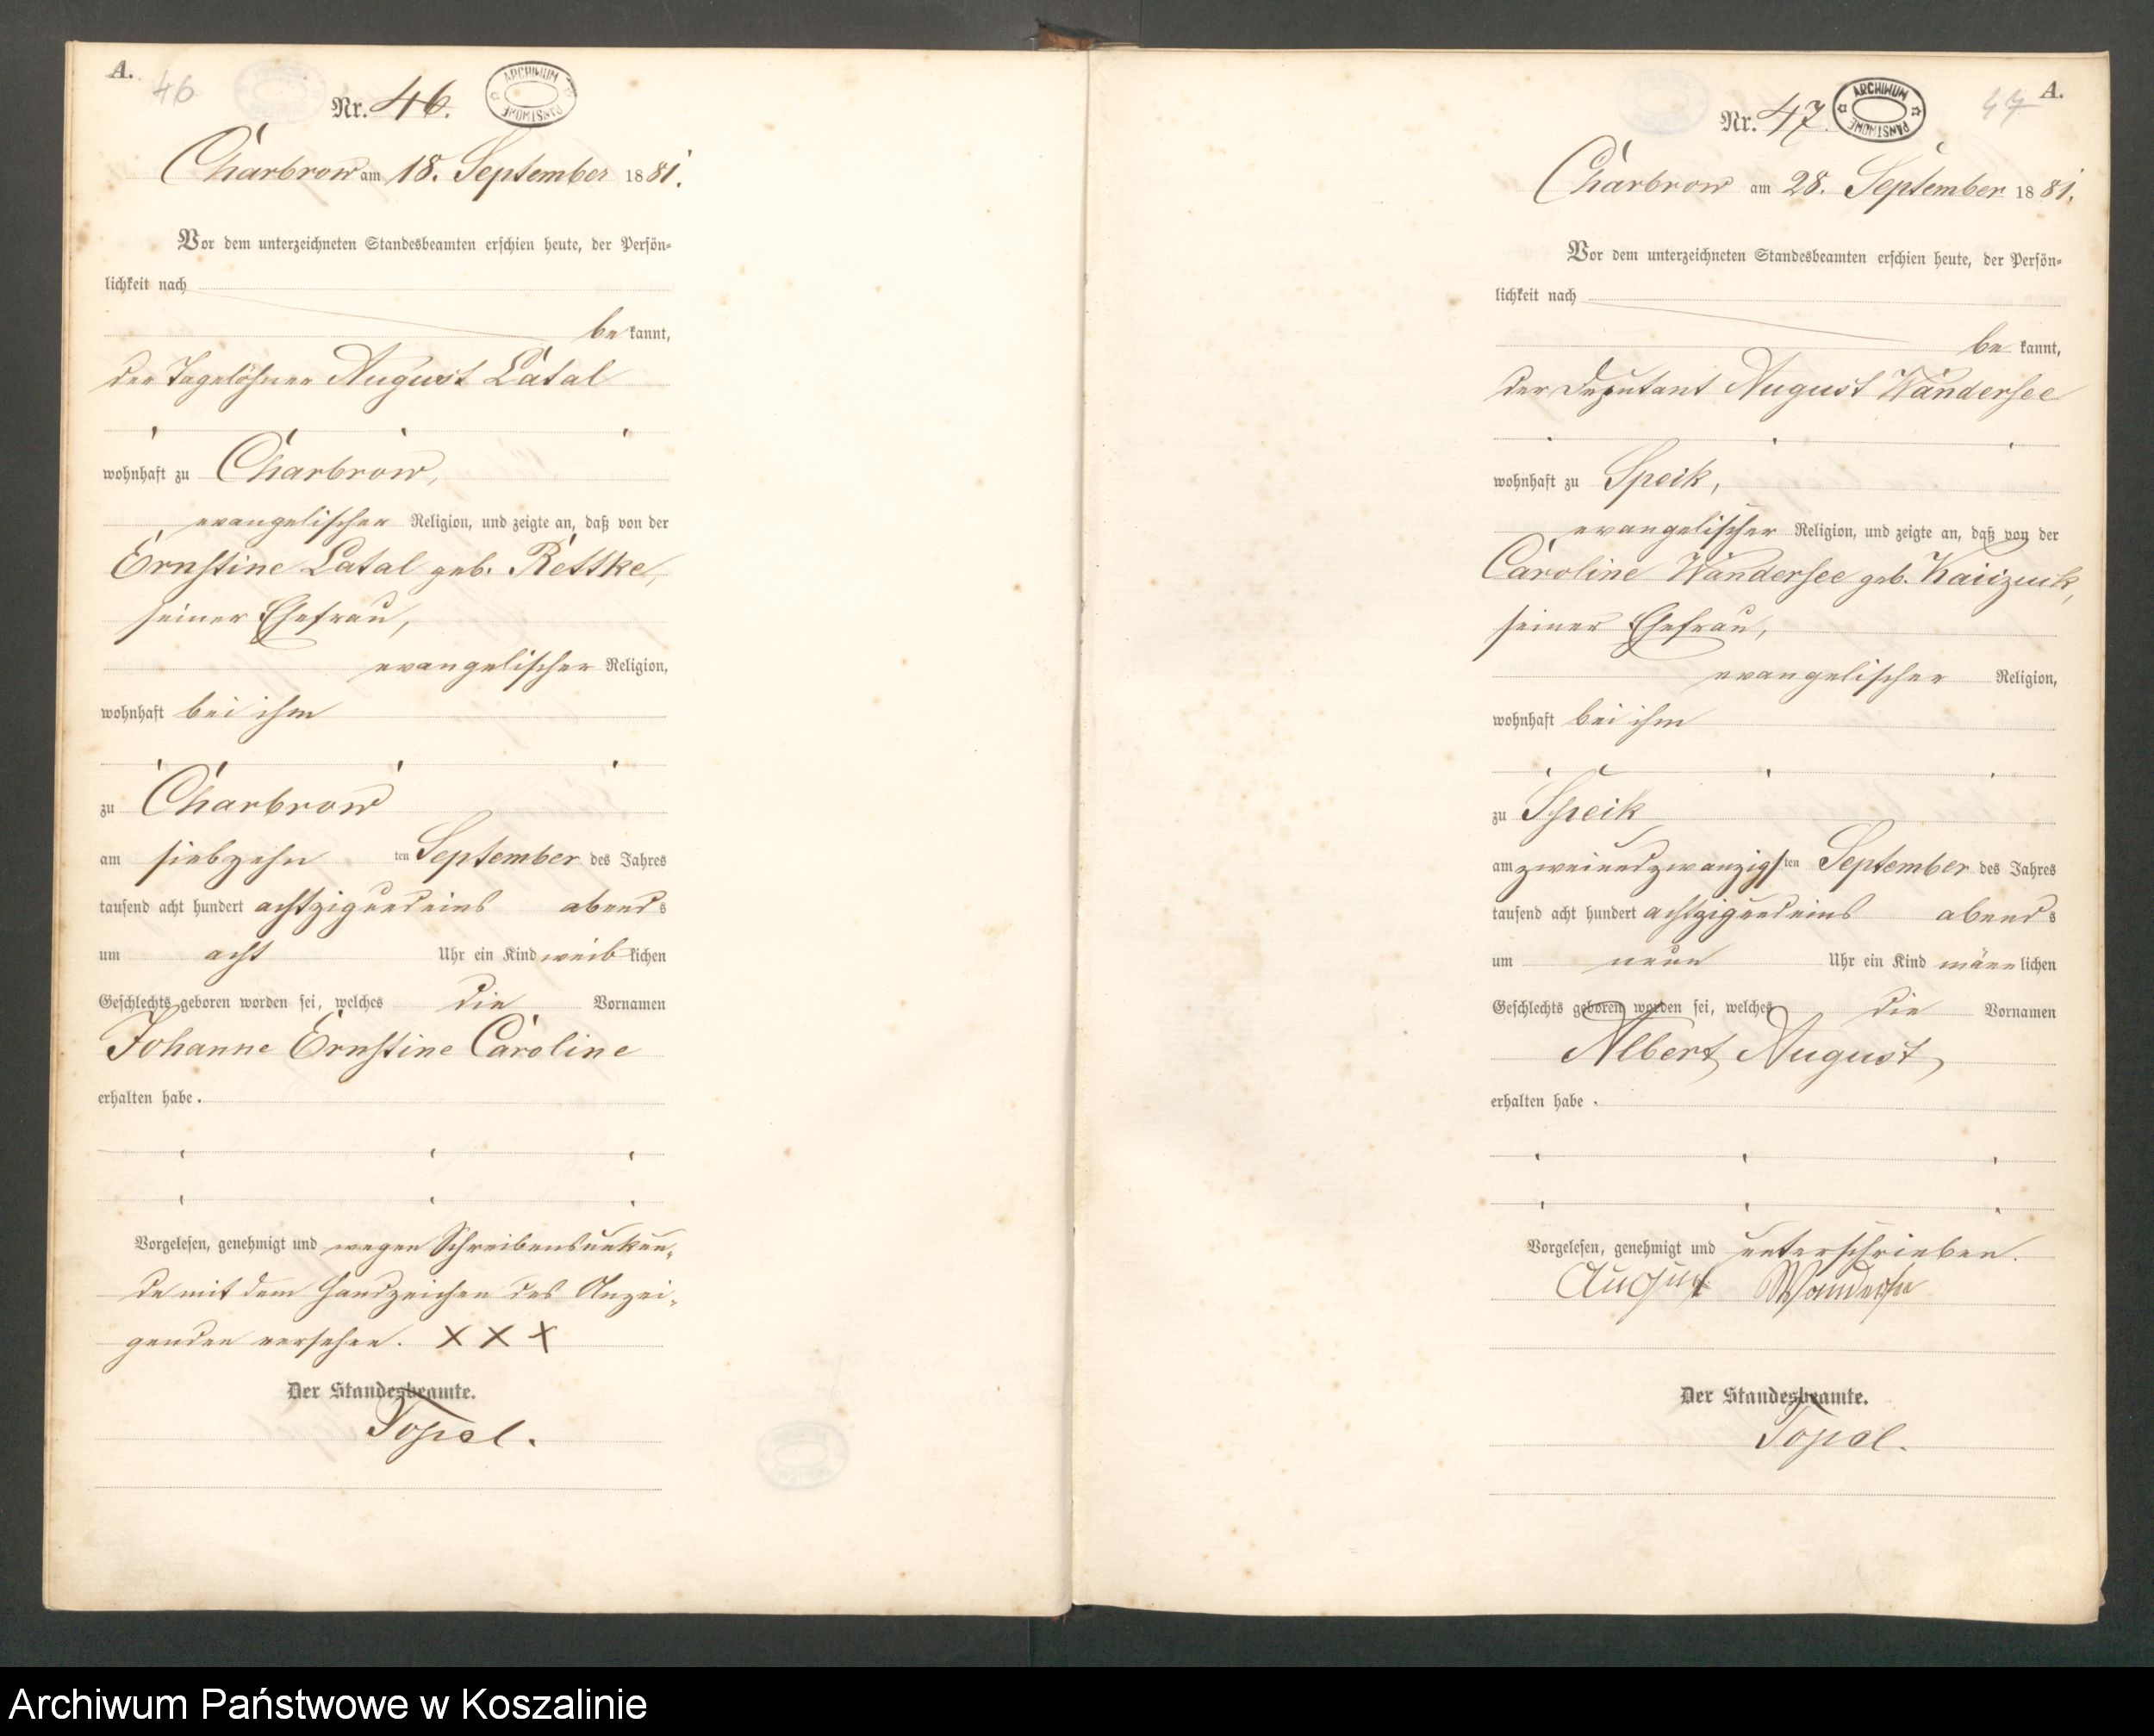 A.
46
Nr. 46.
ARCHIWUM PAŃSTWOWE
Charbrow am 18. September 1881.
Vor dem unterzeichneten Standesbeamten erschien heute, der Persön-
lichkeit nach
be kannt,
der Tagelöhner August Latal
wohnhaft zu Charbrow,
evangelischer Religion, und zeigte an, daß von der
Ernstine Latal geb. Rettke,
seiner Ehefrau,
evangelischer Religion,
wohnhaft bei ihm
zu Charbrow
am siebzehn ten September des Jahres
tausend acht hundert achtzigundeins abends
um acht Uhr ein Kind weiblichen
Geschlechts geboren worden sei, welches die Vornamen
Johanne Ernstine Caroline
erhalten habe.
Vorgelesen, genehmigt und wegen Schreibensunkun-
de mit dem Handzeichen des Anzei-
genden versehen. X X X
Der Standesbeamte.
Topel.
A.
47
Nr. 47.
ARCHIWUM PAŃSTWOWE
Charbrow am 28. September 1881.
Vor dem unterzeichneten Standesbeamten erschien heute, der Persön-
lichkeit nach
be kannt,
der Deputant August Wandersee
wohnhaft zu Speik,
evangelischer Religion, und zeigte an, daß von der
Caroline Wandersee geb.
seiner Ehefrau,
evangelischer Religion,
wohnhaft bei ihm
zu Speik
am zweiundzwanzigsten September des Jahres
tausend acht hundert achtzigundeins abends
um neun Uhr ein Kind männlichen
Geschlechts geboren worden sei, welches die Vornamen
Albert August
erhalten habe.
Vorgelesen, genehmigt und unterschrieben.
August Wandersee
Der Standesbeamte.
Topel.
Archiwum Państwowe w Koszalinie